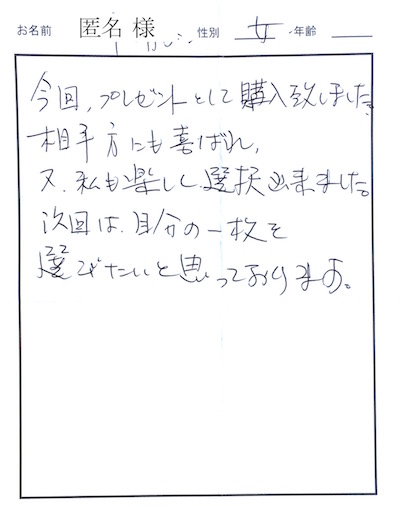 お名前 匿名 様 性別 女 年齢
今回、プレゼントとして購入致しました。
相手方にも喜ばれ、
又、私も楽しく選択出来ました。
次回は、自分の一枚を
選びたいと思っております。